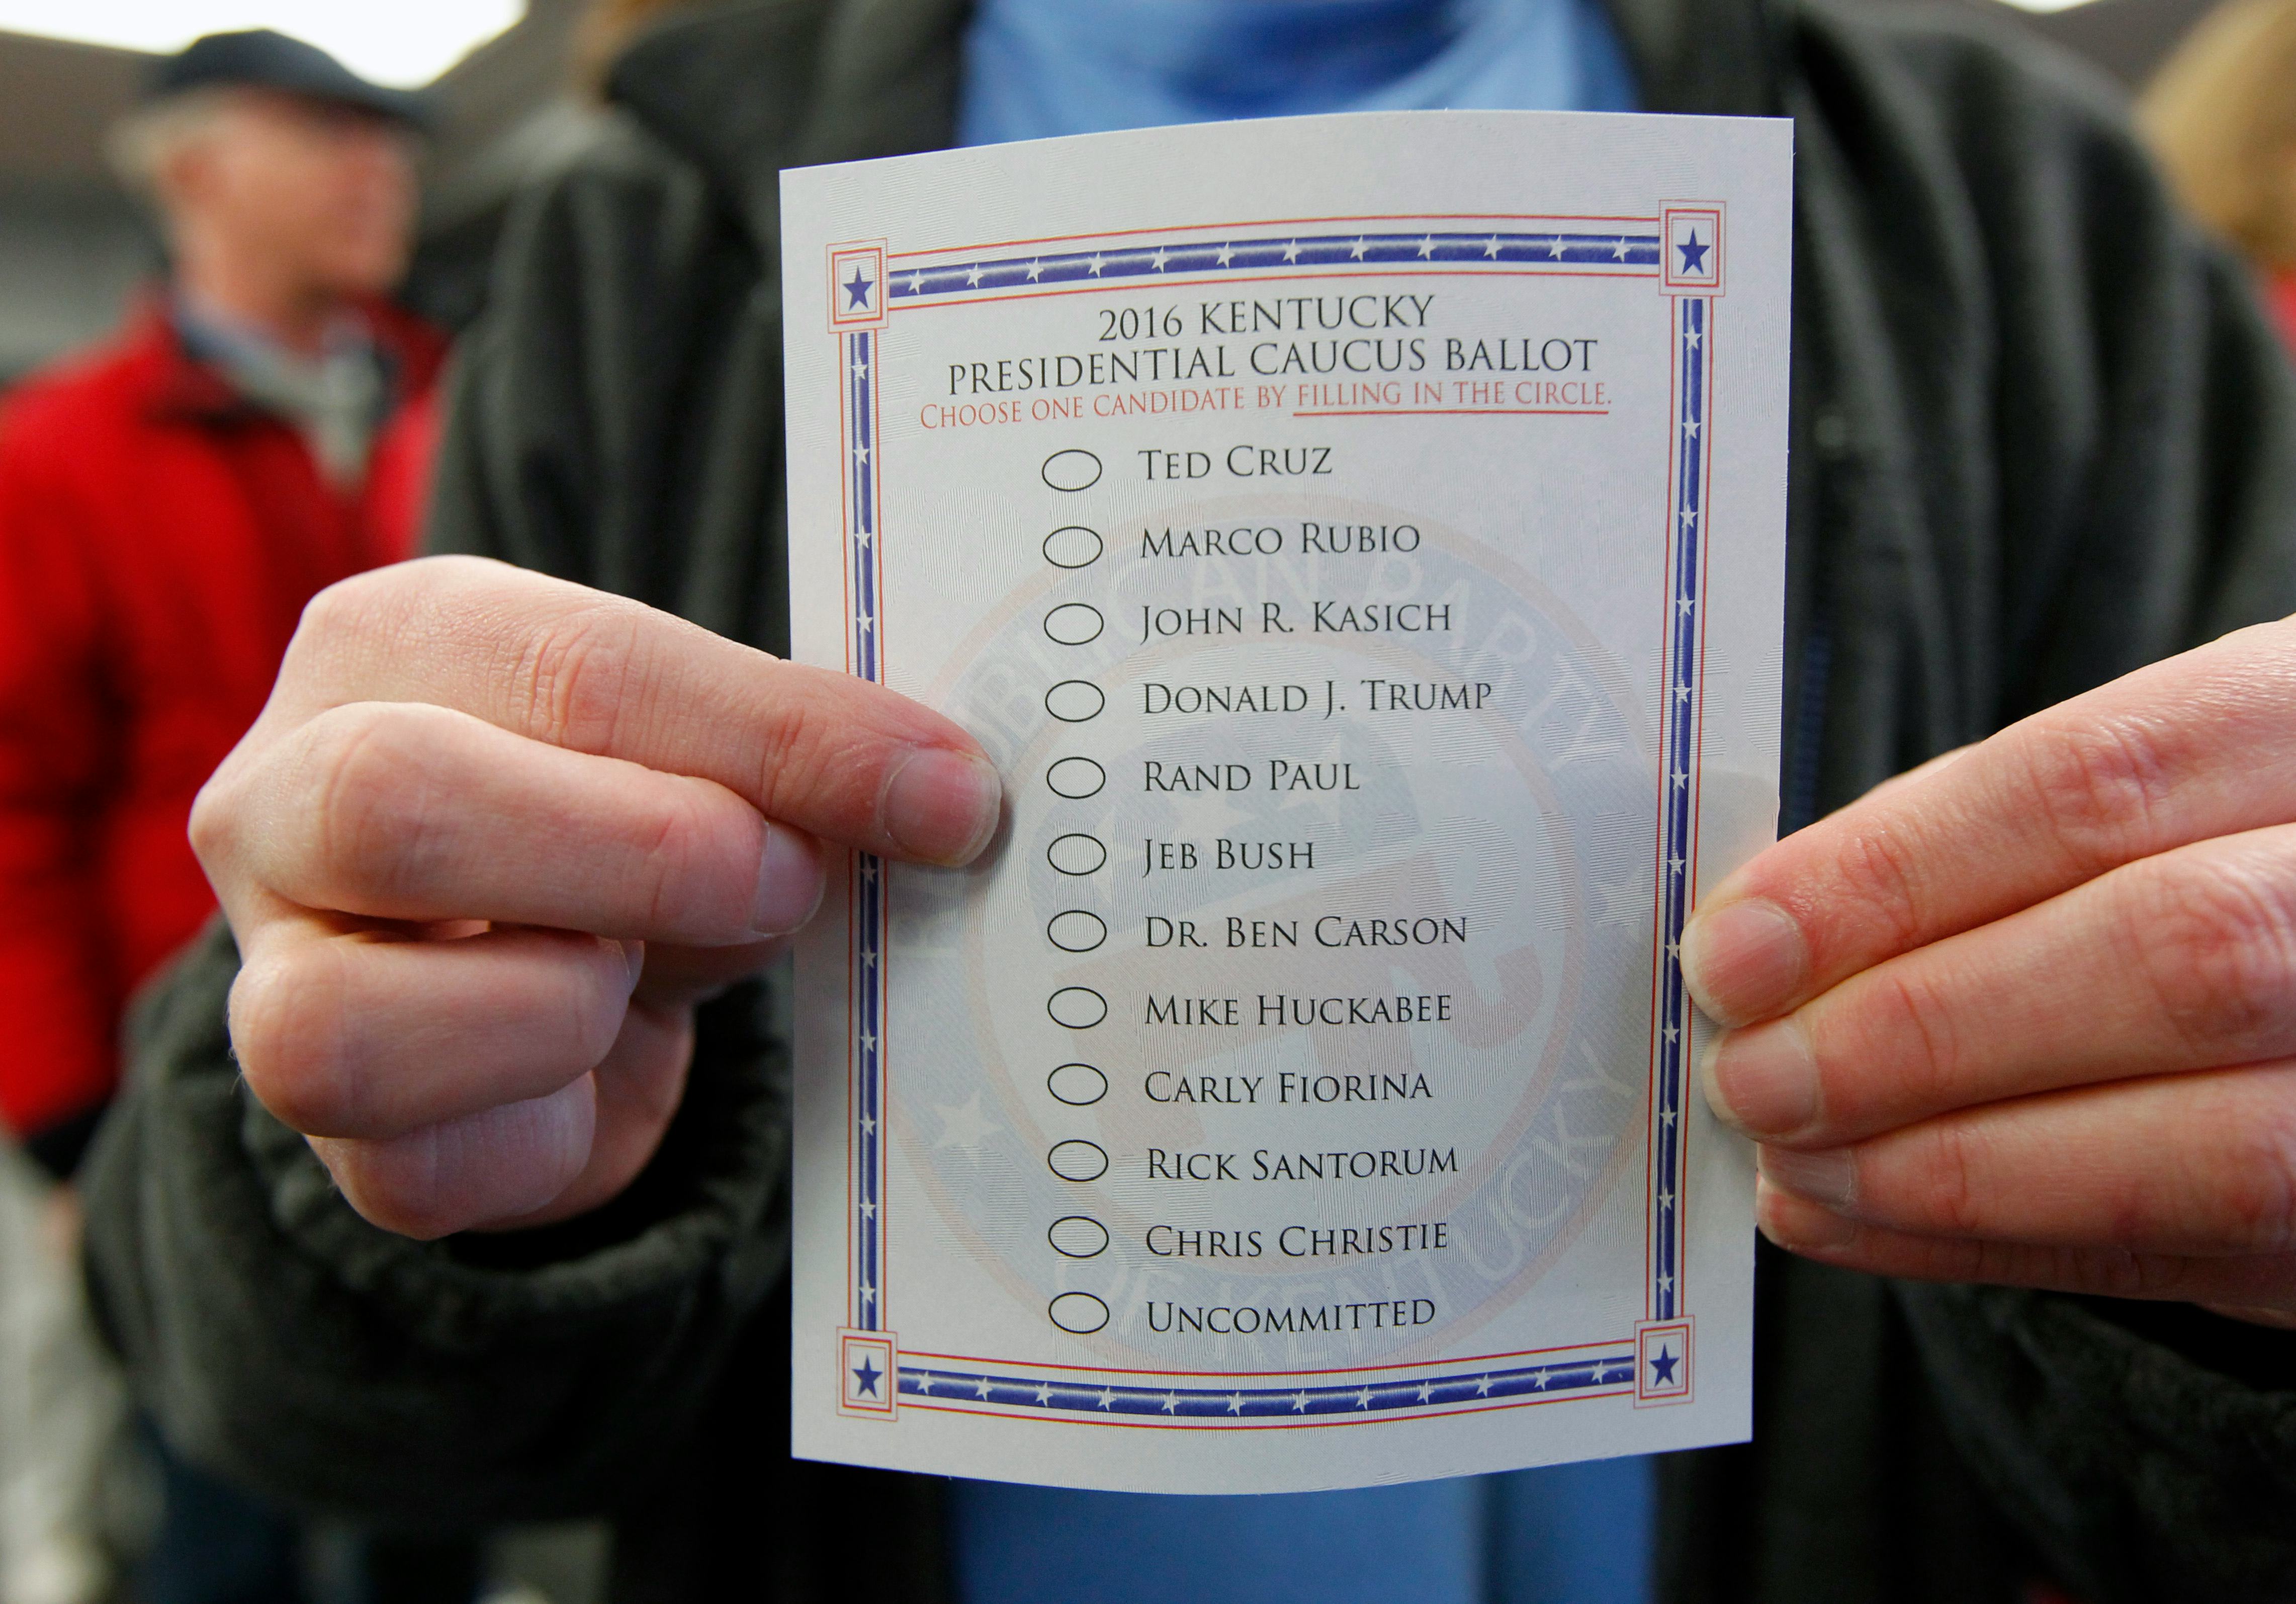 2016 KENTUCKY
PRESIDENTIAL CAUCUS BALLOT
CHOOSE ONE CANDIDATE BY FILLING IN THE CIRCLE.
TED CRUZ
MARCO RUBIO
JOHN R. KASICH
DONALD J. TRUMP
RAND PAUL
JEB BUSH
DR. BEN CARSON
MIKE HUCKABEE
CARLY FIORINA
RICK SANTORUM
CHRIS CHRISTIE
UNCOMMITTED
REPUBLICAN PARTY
OF KENTUCKY